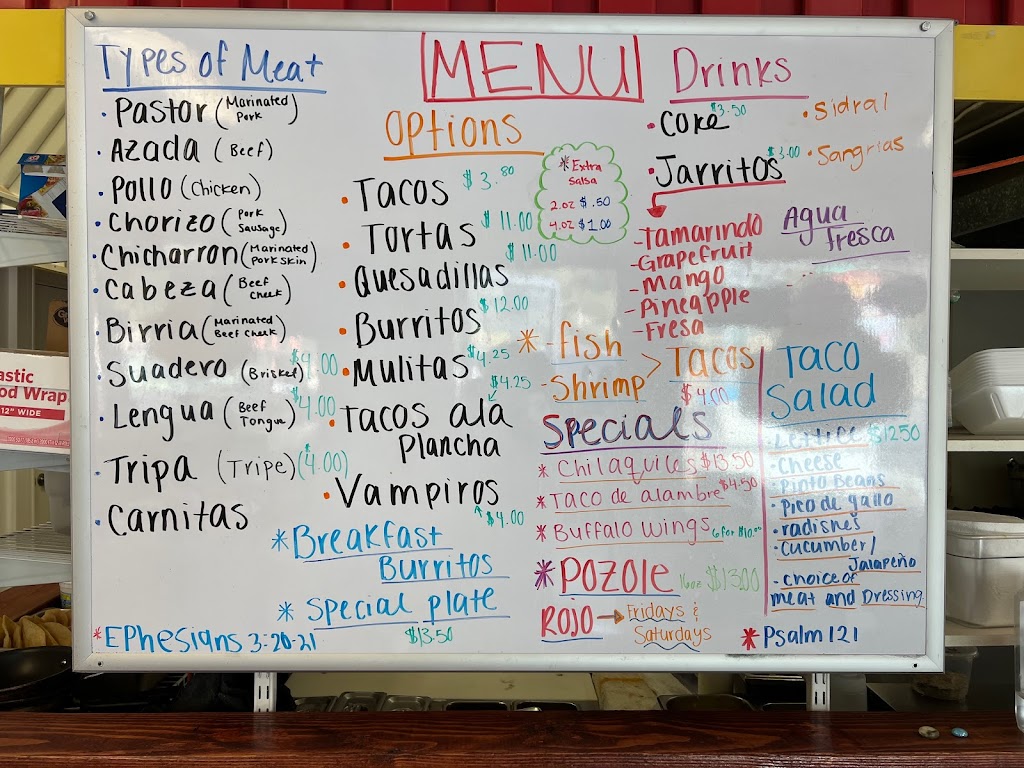 MENU
Types of Meat
• Pastor (Marinated Pork)
• Azada (Beef)
• Pollo (Chicken)
• Chorizo (Pork Sausage)
• Chicharron (Marinated Pork Skin)
• Cabeza (Beef Cheek)
• Birria (Marinated Beef Cheek)
• Suadero (Brisket) $4.00
• Lengua (Beef Tongue) $4.00
• Tripa (Tripe) (4.00)
• Carnitas
Options
• Tacos $3.80
• Tortas $11.00
• Quesadillas $11.00
• Burritos $12.00
• Mulitas $4.25
• Tacos ala Plancha $4.25
• Vampiros $4.00
* Breakfast
Burritos
* Special plate
$13.50
* Extra
salsa
2.oz $.50
4.oz $1.00
Drinks
• Coke $3.50
• Jarritos $3.00
- Tamarindo
- Grapefruit
- Mango
- Pineapple
- Fresa
• Sidral
• Sangrias
Agua
fresca
* - fish
- Shrimp > Tacos
$4.00
Specials
* Chilaquiles $13.50
* Taco de alambre $4.50
* Buffalo wings 6 for $10.00
* Pozole 16oz $13.00
ROJO → Fridays &
Saturdays
Taco
Salad
• Lettuce $12.50
• Cheese
• Pinto Beans
• Pico de gallo
• radishes
• cucumber/
Jalapeño
- choice of
meat and Dressing
* Ephesians 3:20-21
* Psalm 121
astic
od Wrap
12" WIDE